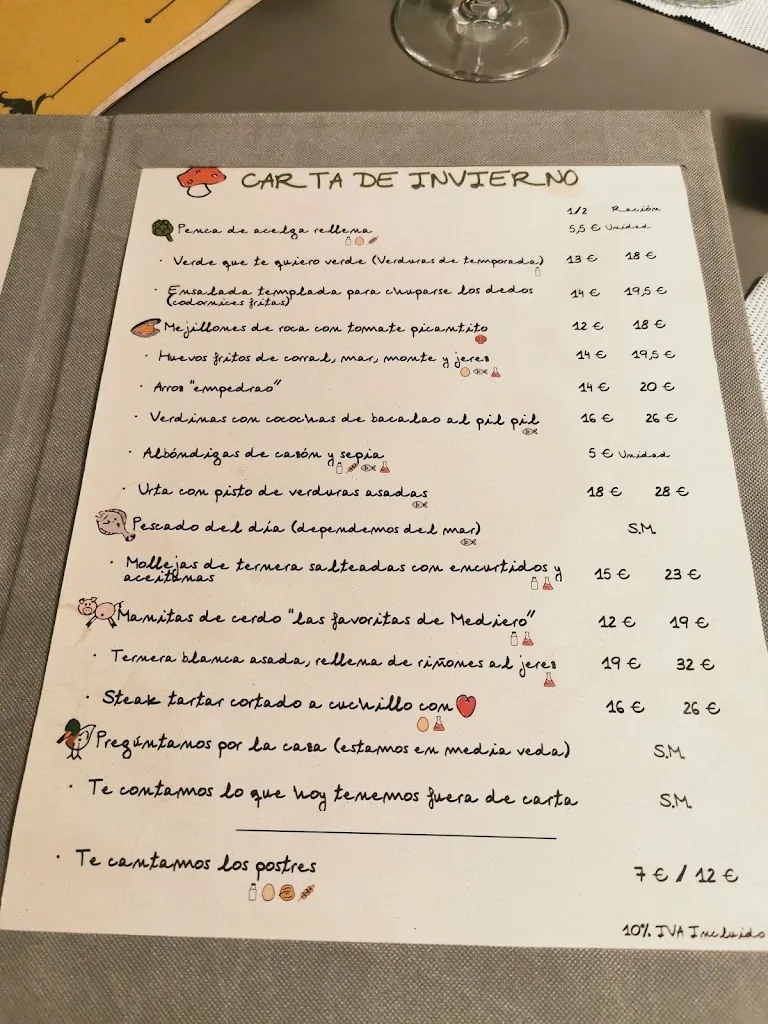 CARTA DE INVIERNO
1/2 Ración
Penca de acelga rellena 5,5 € Unidad
· Verde que te quiero verde (Verduras de temporada) 13 € 18 €
· Ensalada templada para chuparse los dedos 14 € 19,5 €
(codornices fritas)
Mejillones de roca con tomate picantito 12 € 18 €
· Huevos fritos de corral, mar, monte y jerez 14 € 19,5 €
· Arroz "empedrao" 14 € 20 €
· Verdinas con cocochas de bacalao al pil pil 16 € 26 €
· Albóndigas de cazón y sepia 5 € Unidad
· Urta con pisto de verduras asadas 18 € 28 €
Pescado del día (dependemos del mar) S.M.
· Mollejas de ternera salteadas con encurtidos y 15 € 23 €
aceitunas
Manitas de cerdo "las favoritas de Mediero" 12 € 19 €
· Ternera blanca asada, rellena de riñones al jerez 19 € 32 €
· Steak tartar cortado a cuchillo con 16 € 26 €
Pregúntanos por la caza (estamos en media veda) S.M.
· Te contamos lo que hoy tenemos fuera de carta S.M.
· Te cantamos los postres 7 € / 12 €
10% IVA Incluido